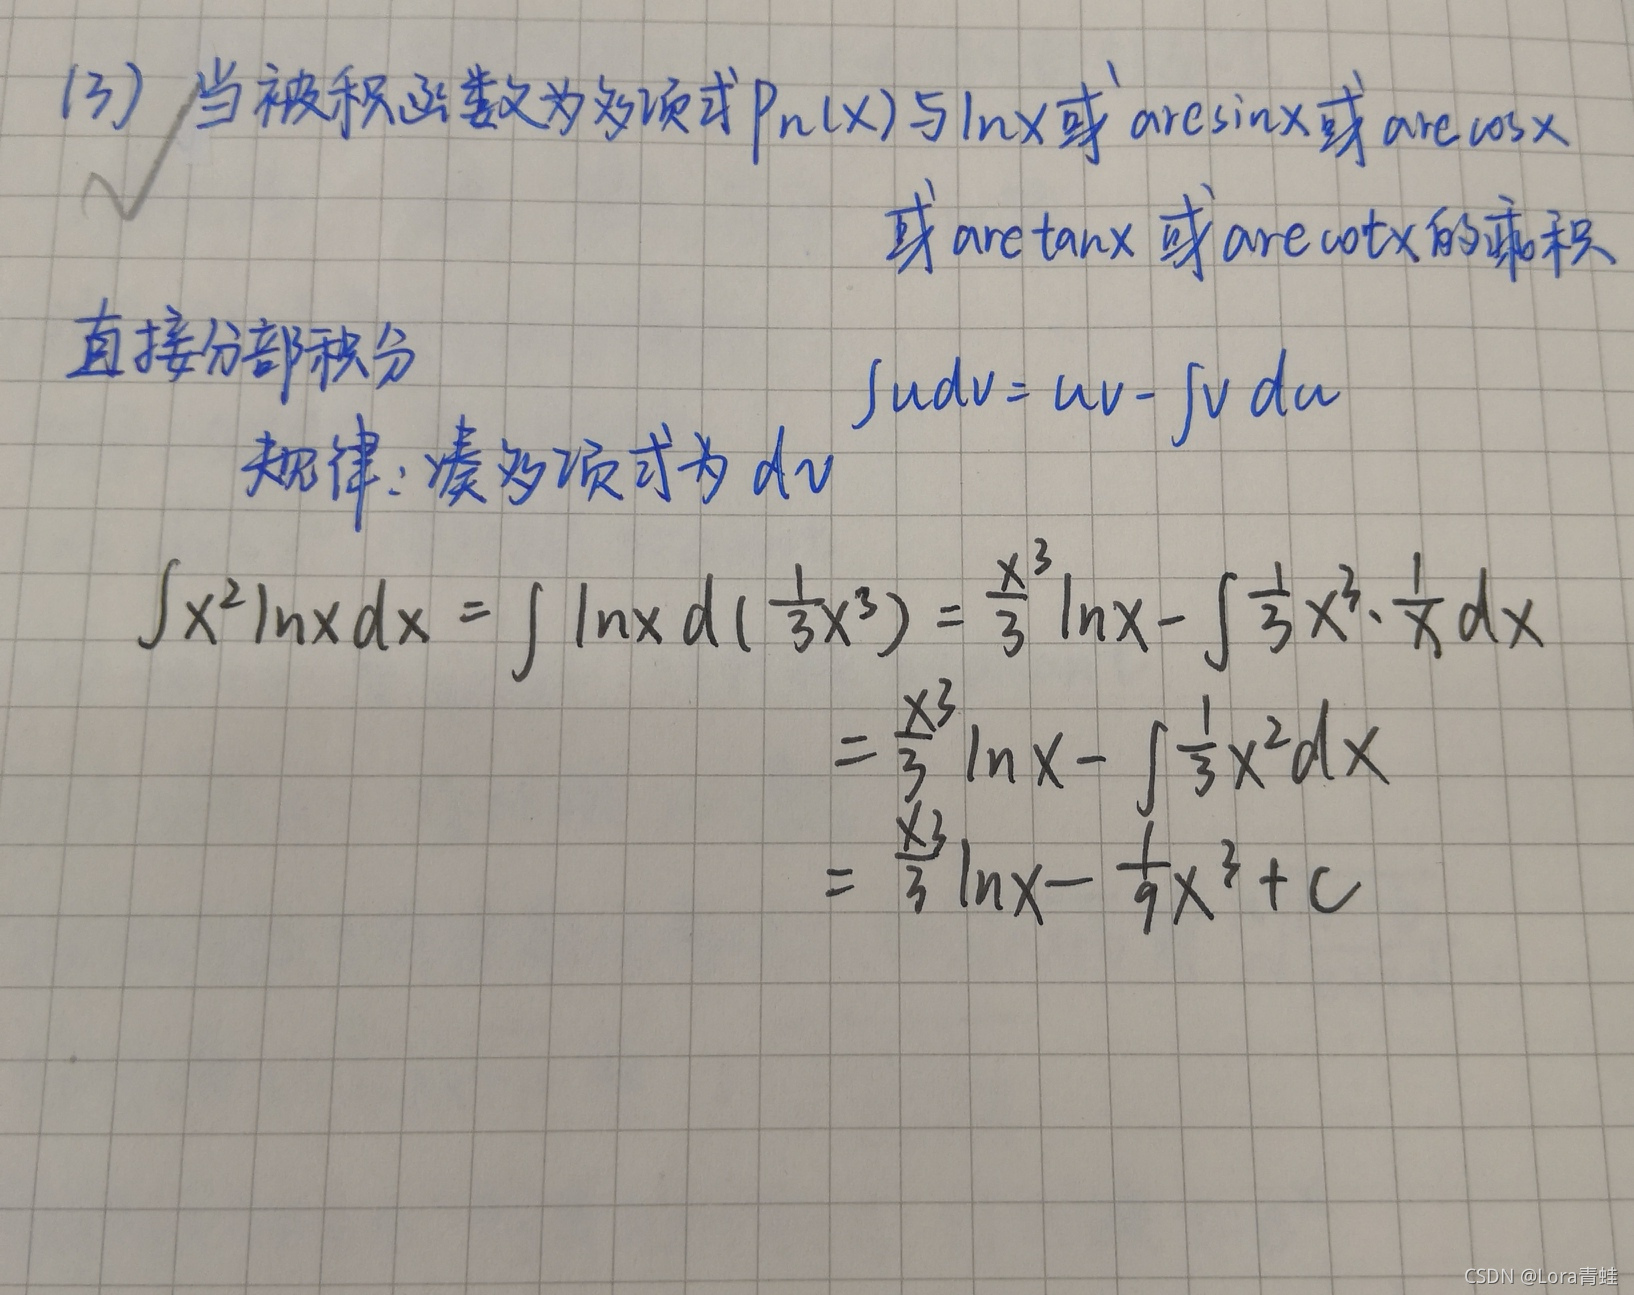 (3) 当被积函数为多项式Pn(x)与lnx或arcsinx或arccosx
或arctanx或arccotx的乘积
直接分部积分
∫udv=uv-∫vdu
规律:凑多项式为dv
∫x²lnxdx=∫lnxd(1/3x³)=x³/3lnx-∫1/3x³·1/xdx
=x³/3lnx-∫1/3x²dx
=x³/3lnx-1/9x³+c
CSDN @Lora青蛙